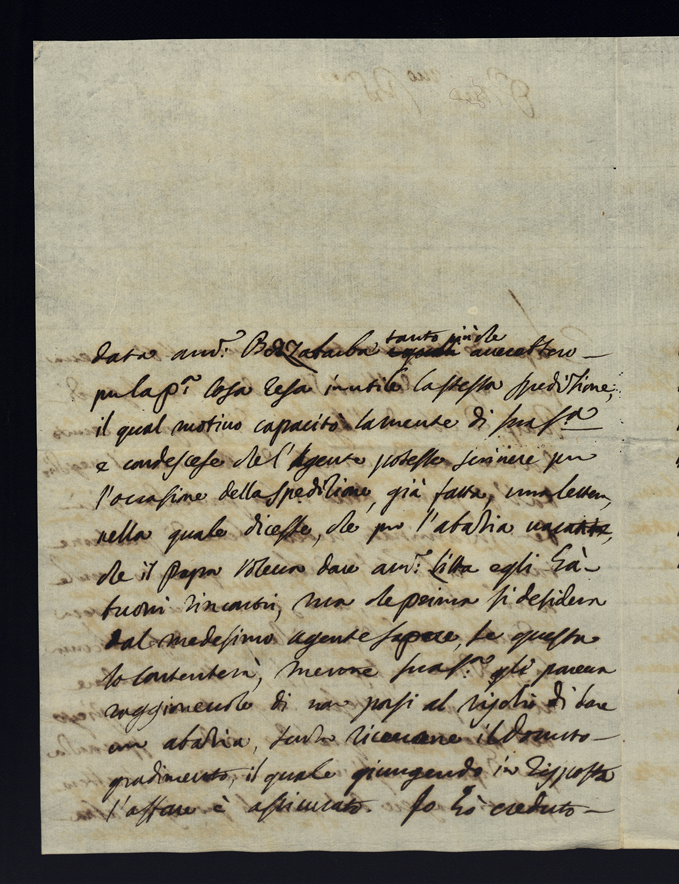 tanto più che
data a Mons.r Bozzabarba accettono
p la p.ª cosa resa inutile la stessa speditione,
il qual motivo capacitò la mente di sua S.tà
e condescese che l'Agente potesse scrivere per
l'occasione della speditione, già fatta, una lettera,
nella quale dicesse, che per l'abatia vacante,
che il Papa voleva dare a Mons.r Litta egli hà
buoni rincontri, ma che prima si desidera
dal medesimo agente sapere, se questa
lo contenterà, mercene sua S.tà gli pareva
raggionevole di non porsi al rischio di dare
un abatia, senza ricevere il dovuto
gradimento, il quale giungendo in risposta
l'affare è assicurato. Io hò creduto